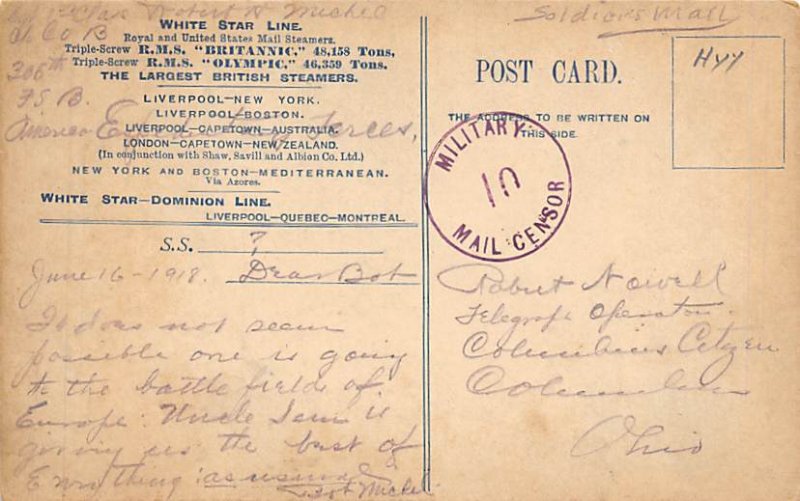 Robert H. Michel
Co B
306th
F S B.
America Forces,
WHITE STAR LINE.
Royal and United States Mail Steamers.
Triple-Screw R.M.S. "BRITANNIC," 48,158 Tons,
Triple-Screw R.M.S. "OLYMPIC," 46,359 Tons.
THE LARGEST BRITISH STEAMERS.
LIVERPOOL—NEW YORK.
LIVERPOOL—BOSTON.
LIVERPOOL—CAPETOWN—AUSTRALIA.
LONDON—CAPETOWN—NEW ZEALAND.
(In conjunction with Shaw, Savill and Albion Co. Ltd.)
NEW YORK AND BOSTON—MEDITERRANEAN.
Via Azores.
WHITE STAR—DOMINION LINE.
LIVERPOOL—QUEBEC—MONTREAL.
S.S. ?
June 16 - 1918. Dear Bob
It does not seem
possible one is going
to the battle fields of
Europe. Uncle Sam is
giving us the best of
Everything as usual
Bob Michel
Soldiers Mail
POST CARD.
THE ADDRESS TO BE WRITTEN ON
THIS SIDE.
MILITARY
10
MAIL CENSOR
Robert Nowell
Telegraph Operator.
Columbus Citizen
Columbus
Ohio